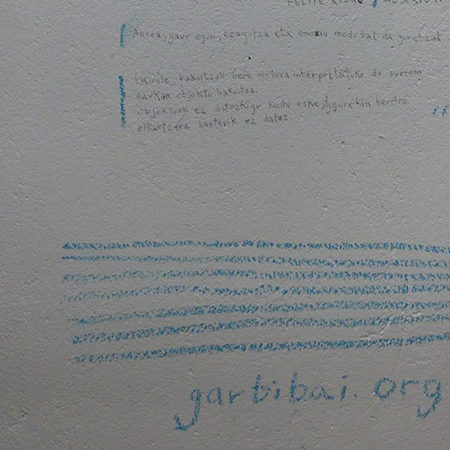 Aurea, gaur egun, ezagutza eta emozio modu bat da guretzat
Ikusle bakoitzak bere modura interpretatuko du aurrean
daukan objektu bakoitza.
Objektuak ez datozkigu kontu eske, gurekin berriro
elkartzera besterik ez datoz.
garbibai.org